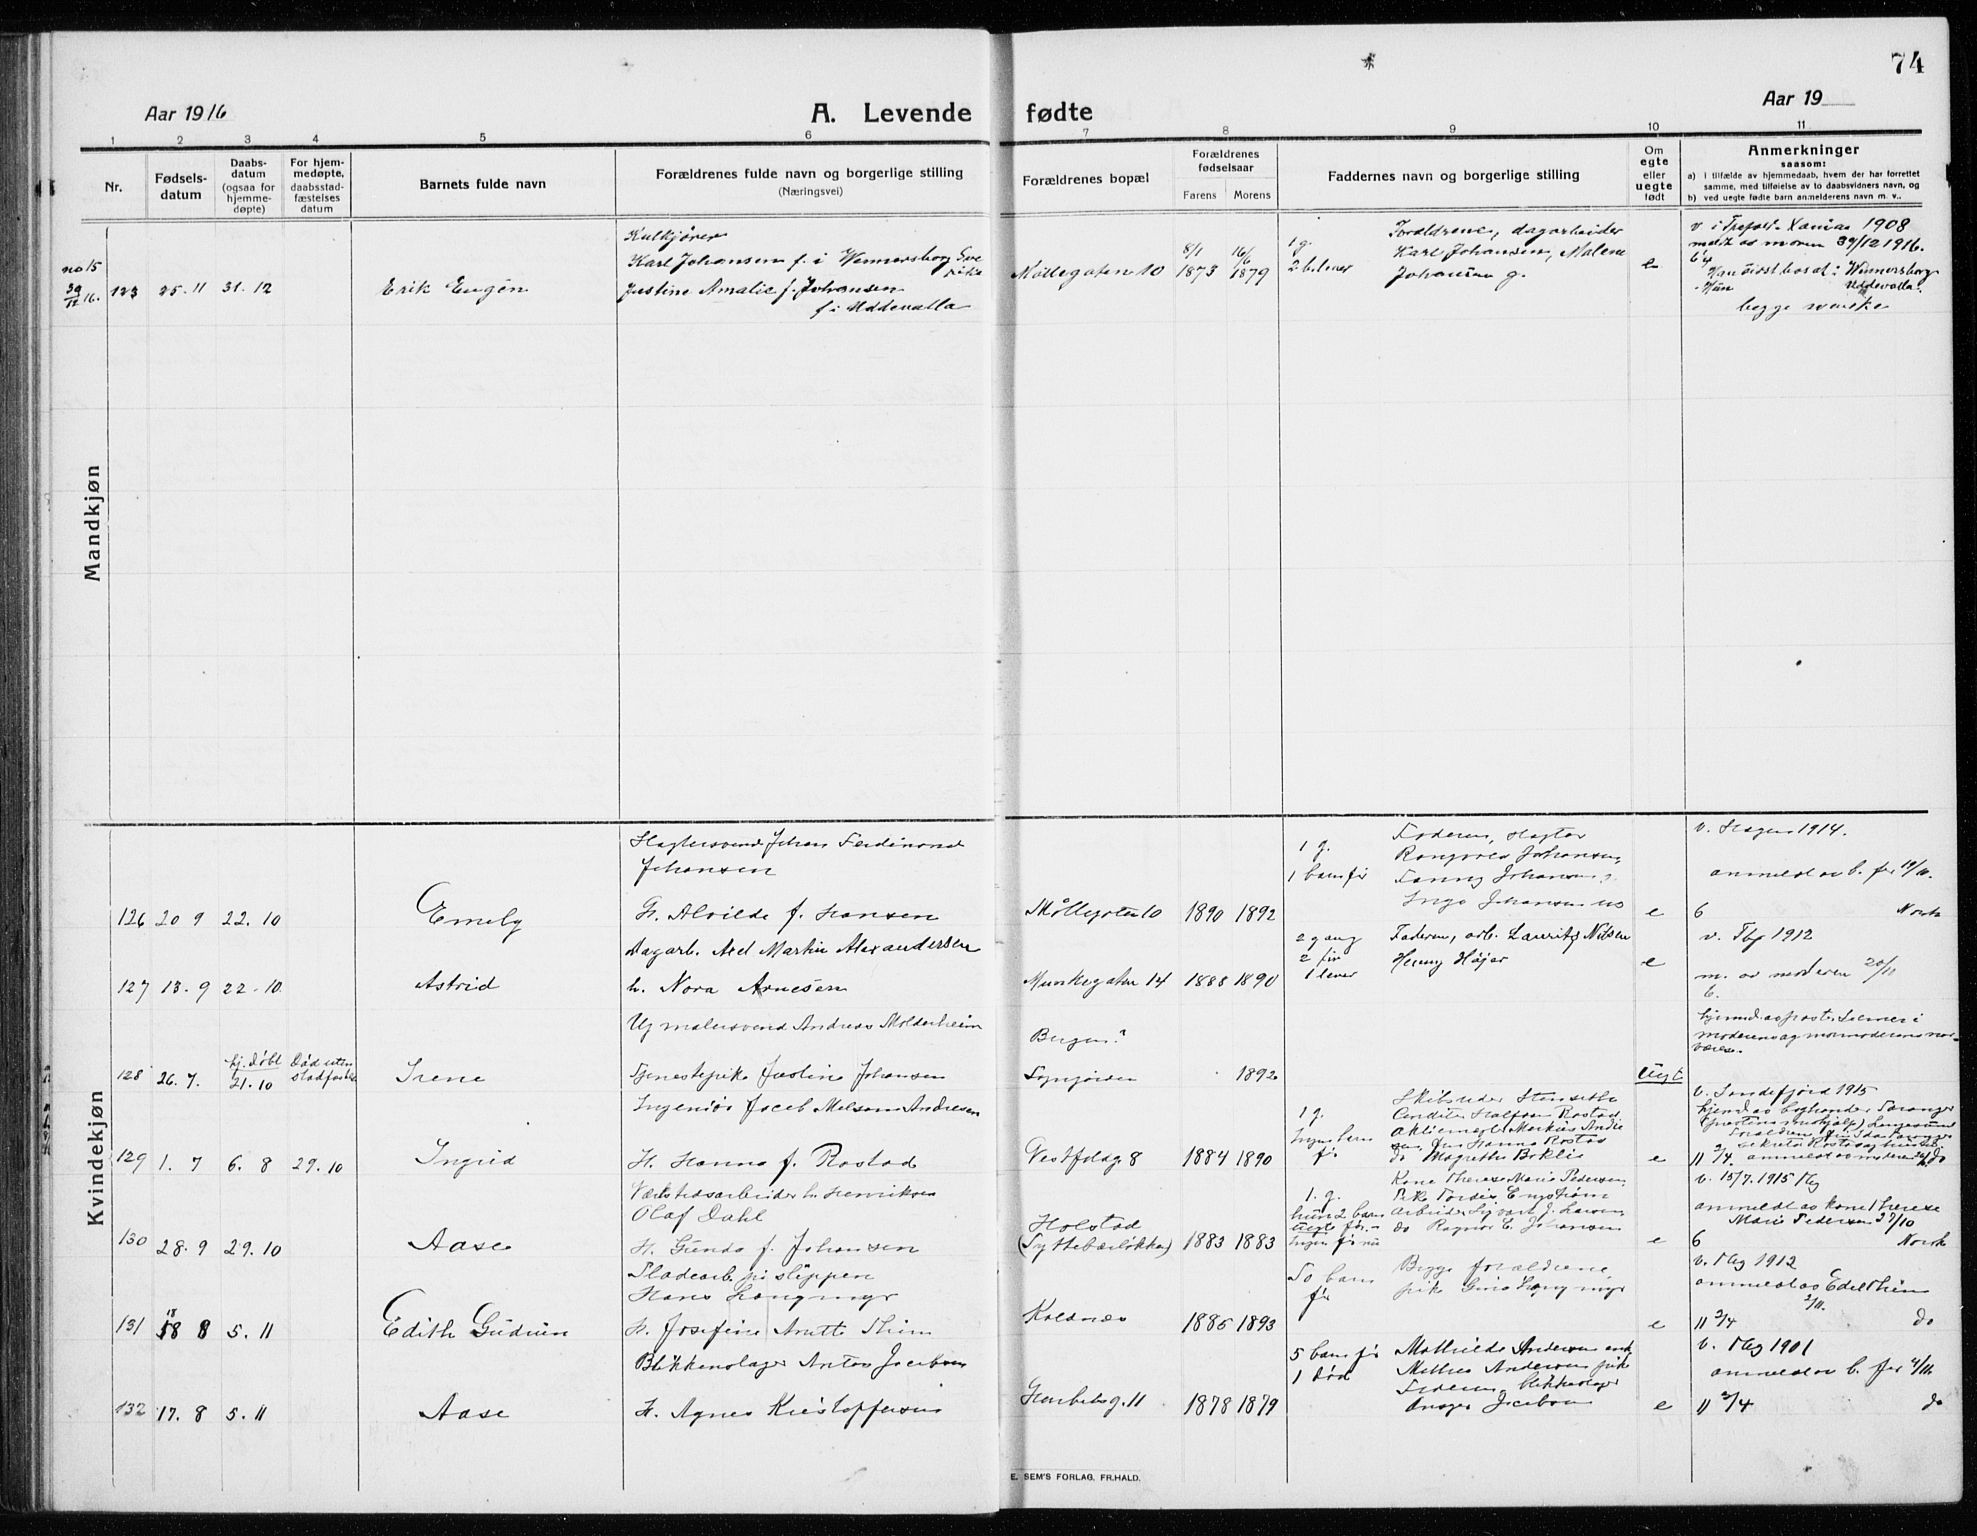 74
Aar 1916
A. Levende fødte
Aar 19
1 2 3 4 5 6 7 8 9 10 11
Nr.
Fødsels-
datum
Daabs-
datum
(ogsaa for
hjemme-
døpte)
For hjem-
medøpte,
daabsstad-
fæstelses
datum
Barnets fulde navn
Forældrenes fulde navn og borgerlige stilling
(Næringsvei)
Forældrenes bopæl
Forældrenes
fødselsaar
Farens Morens
Faddernes navn og borgerlige stilling
Om
egte
eller
uegte
født
Anmerkninger
saasom:
a) i tilfælde av hjemmedaab, hvem der har forrettet
samme, med tilføielse av to daabsvidners navn, og
b) ved uegte fødte barn anmelderens navn m. v..
Mandkjøn
no 15
29/12 16.
123 25. 11 31. 12
Erik Eugen
Kulkjører
Karl Johansen f. i Wennersborg Sve
rike
Justine Amalie f. Johansen
f. i Uddevalla
Møllegaten 10
8/1
1873
16/6
1879
1 g.
Forældrene, dagarbeider
Karl Johansen, Malene
Johansen g.
e
1908
meldt av moren 30/12 1916.
64
Han sidst bosat i Wennersborg
Hun Uddevalla.
begge svenske
Kvindekjøn
126 20 9 22. 10
Emely
Johan Ferdinand
Johansen
H. Alvilde f. Hansen
Møllegaten 10
1890 1892
1 g.
1 barn før
Faderen,
Johansen,
Fanny Johansen
Johansen
e
1914.
anmeldt av b. far
6
Norsk
127 13. 9 22. 10
Astrid
Dagarb. Axel Martin Alexandersen
h. Nora Arnesen
Munkegaten 14
1888 1890
2 gang
2 før
1 lever
Faderen, arb. Lauritz Nilsen
Henny Højer
e
v. Tbg 1912
m. av moderen 20/10
6.
128 26. 7.
hj. døbt
21. 10
Død uten
stadfæstelse
Irene
Ug malersvend Andreas Molderheim
Tjenestepike Justine Johansen
Bergen?
1892
Uegt
moderens og mormoderens nær-
værelse.
129 1. 7 6. 8 29. 10
Ingrid
Ingeniør Jacob Melsom Andresen
H. Hanna f. Rostad
Vestfoldg 8
1884 1890
1 g.
Ingen barn
før
Rostad
Hanna Rostad
do Magrethe
e
v. Sandefjord 1915
11 2/4.
do
130 28. 9 29. 10
Aase
Værkstedsarbeider h. Henriksen
Olaf Dahl
H. Gunda f. Johansen
Holstad
(Tyttebærløkken)
1883 1883
1. g.
hun 2 barn
uegte før.
Ingen før nu
Kone Therese Marie Pedersen
Pike Tordis Engstrøm
Arbeider Sigvart J. Larsen
do Ragnar E. Johansen
e
v. 15/7. 1915 Tbg
anmeldt av kone Therese
Marie Pedersen 27/10
6
Norsk
131 18 8 5. 11
Edith Gudrun
Pladearb. på slippen
Hans Langmyr
H. Josefine Anette Thim
Kaldnæs
1885 1893
To barn
før
Begge forældrene
pike Gina Langmyr
e
v. Tbg 1912
anmeldt av Edel Thim
2/11.
11 2/4
do
132 17. 8 5. 11
Aase
Blikkenslager Anton Jacobsen
H. Agnes Kristoffersen
1878 1879
5 barn før
1 død
Mathilde Andersen
Andersen pike
Faderen, blikkenslager
Jacobsen
e
v. Tbg 1901
anmeldt av b. far 4/11
11 2/4
do
E. SEM'S FORLAG, FR.HALD.